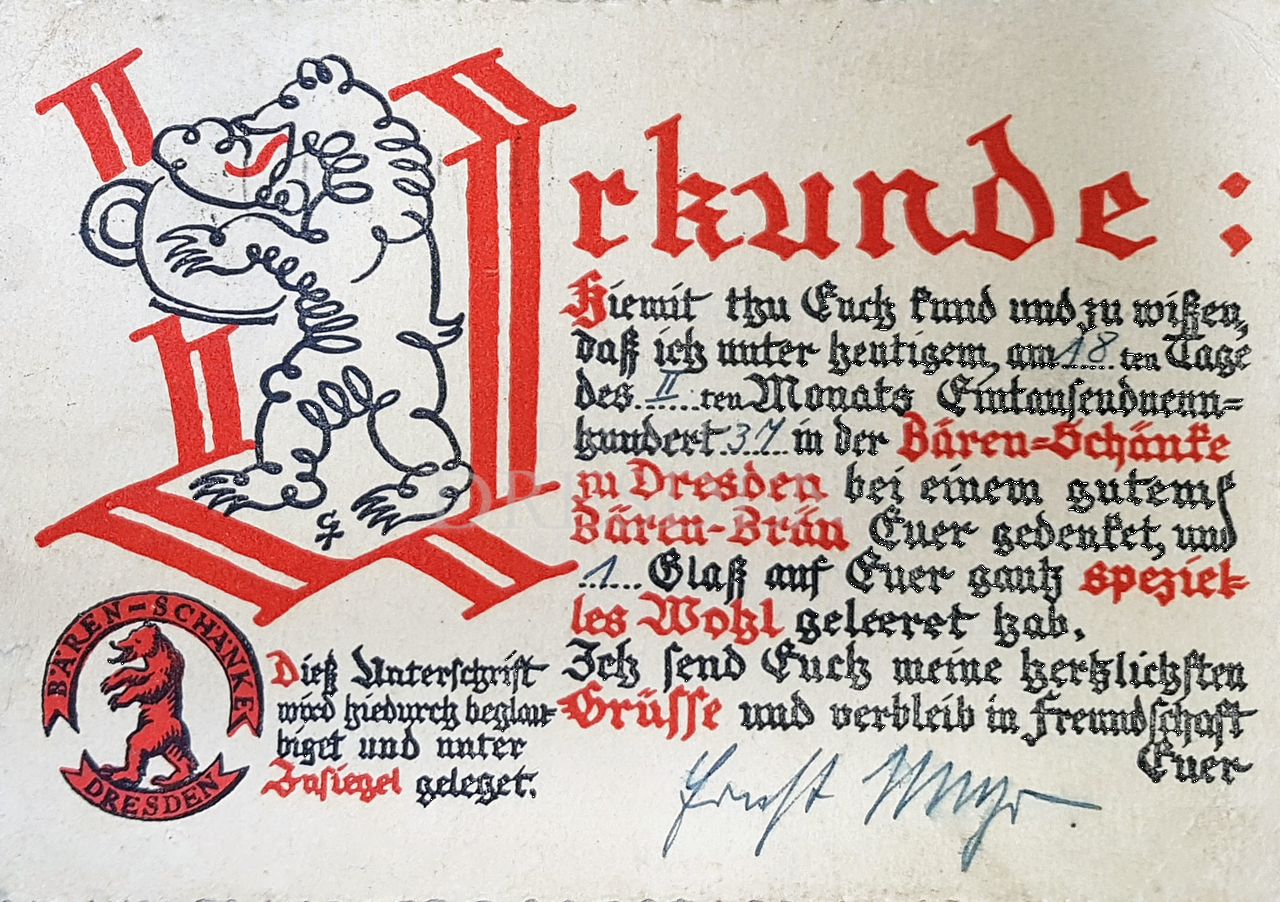 Urkunde:
Hiemit thu Euch kund und zu wißen,
daß ich unter heutigem, am 18ten Tage
des II ten Monats Eintausendneun=
hundert 37 in der Bären=Schänke
zu Dresden bei einem gutem
Bären-Bräu Euer gedenket, und
1 Glaß auf Euer gantz speziel-
les Wohl geleeret hab.
Ich send Euch meine hertzlichsten
Grüsse und verbleib in Freundschaft
Euer
Ernst
BÄREN-SCHÄNKE
DRESDEN
Dieß Unterschrift
wird hiedurch beglau-
biget und unter
Insiegel geleget: